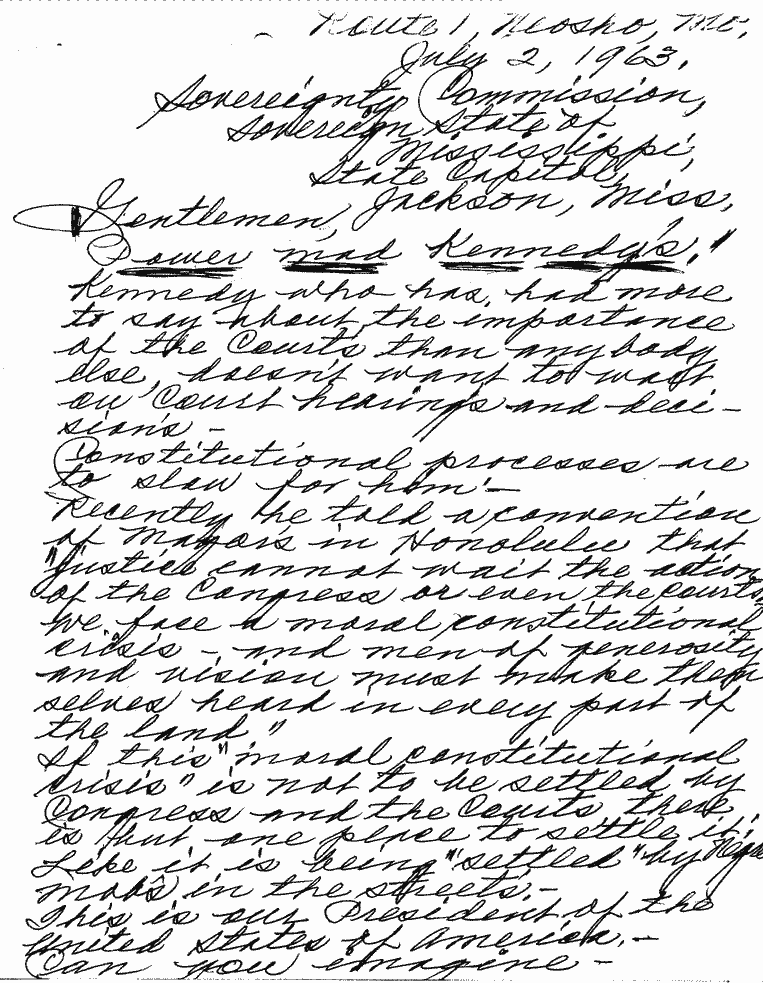 Route 1, Neosho, Mo.
July 2, 1963.
Sovereignty Commission,
Sovereign State of
Mississippi,
State Capitol,
Jackson, Miss,
Gentlemen,
Power mad Kennedy's."
Kennedy who has, had more
to say about the importance
of the Courts than anybody
else, doesn't want to wait
on Court hearings and deci-
sions -
Constitutional processes are
to slow for him! -
Recently he told a convention
of Mayors in Honolulu that
"Justice cannot wait the action
of the Congress or even the courts.
We face a moral constitutional
crisis - and men of generosity
and vision must make them
selves heard in every part of
the land"
If this "moral constitutional
crisis" is not to be settled by
Congress and the Courts there
is but one place to settle it;
Like it is being "settled" by
mobs in the streets. -
This is our President of the
United States of America. -
Can you imagine -